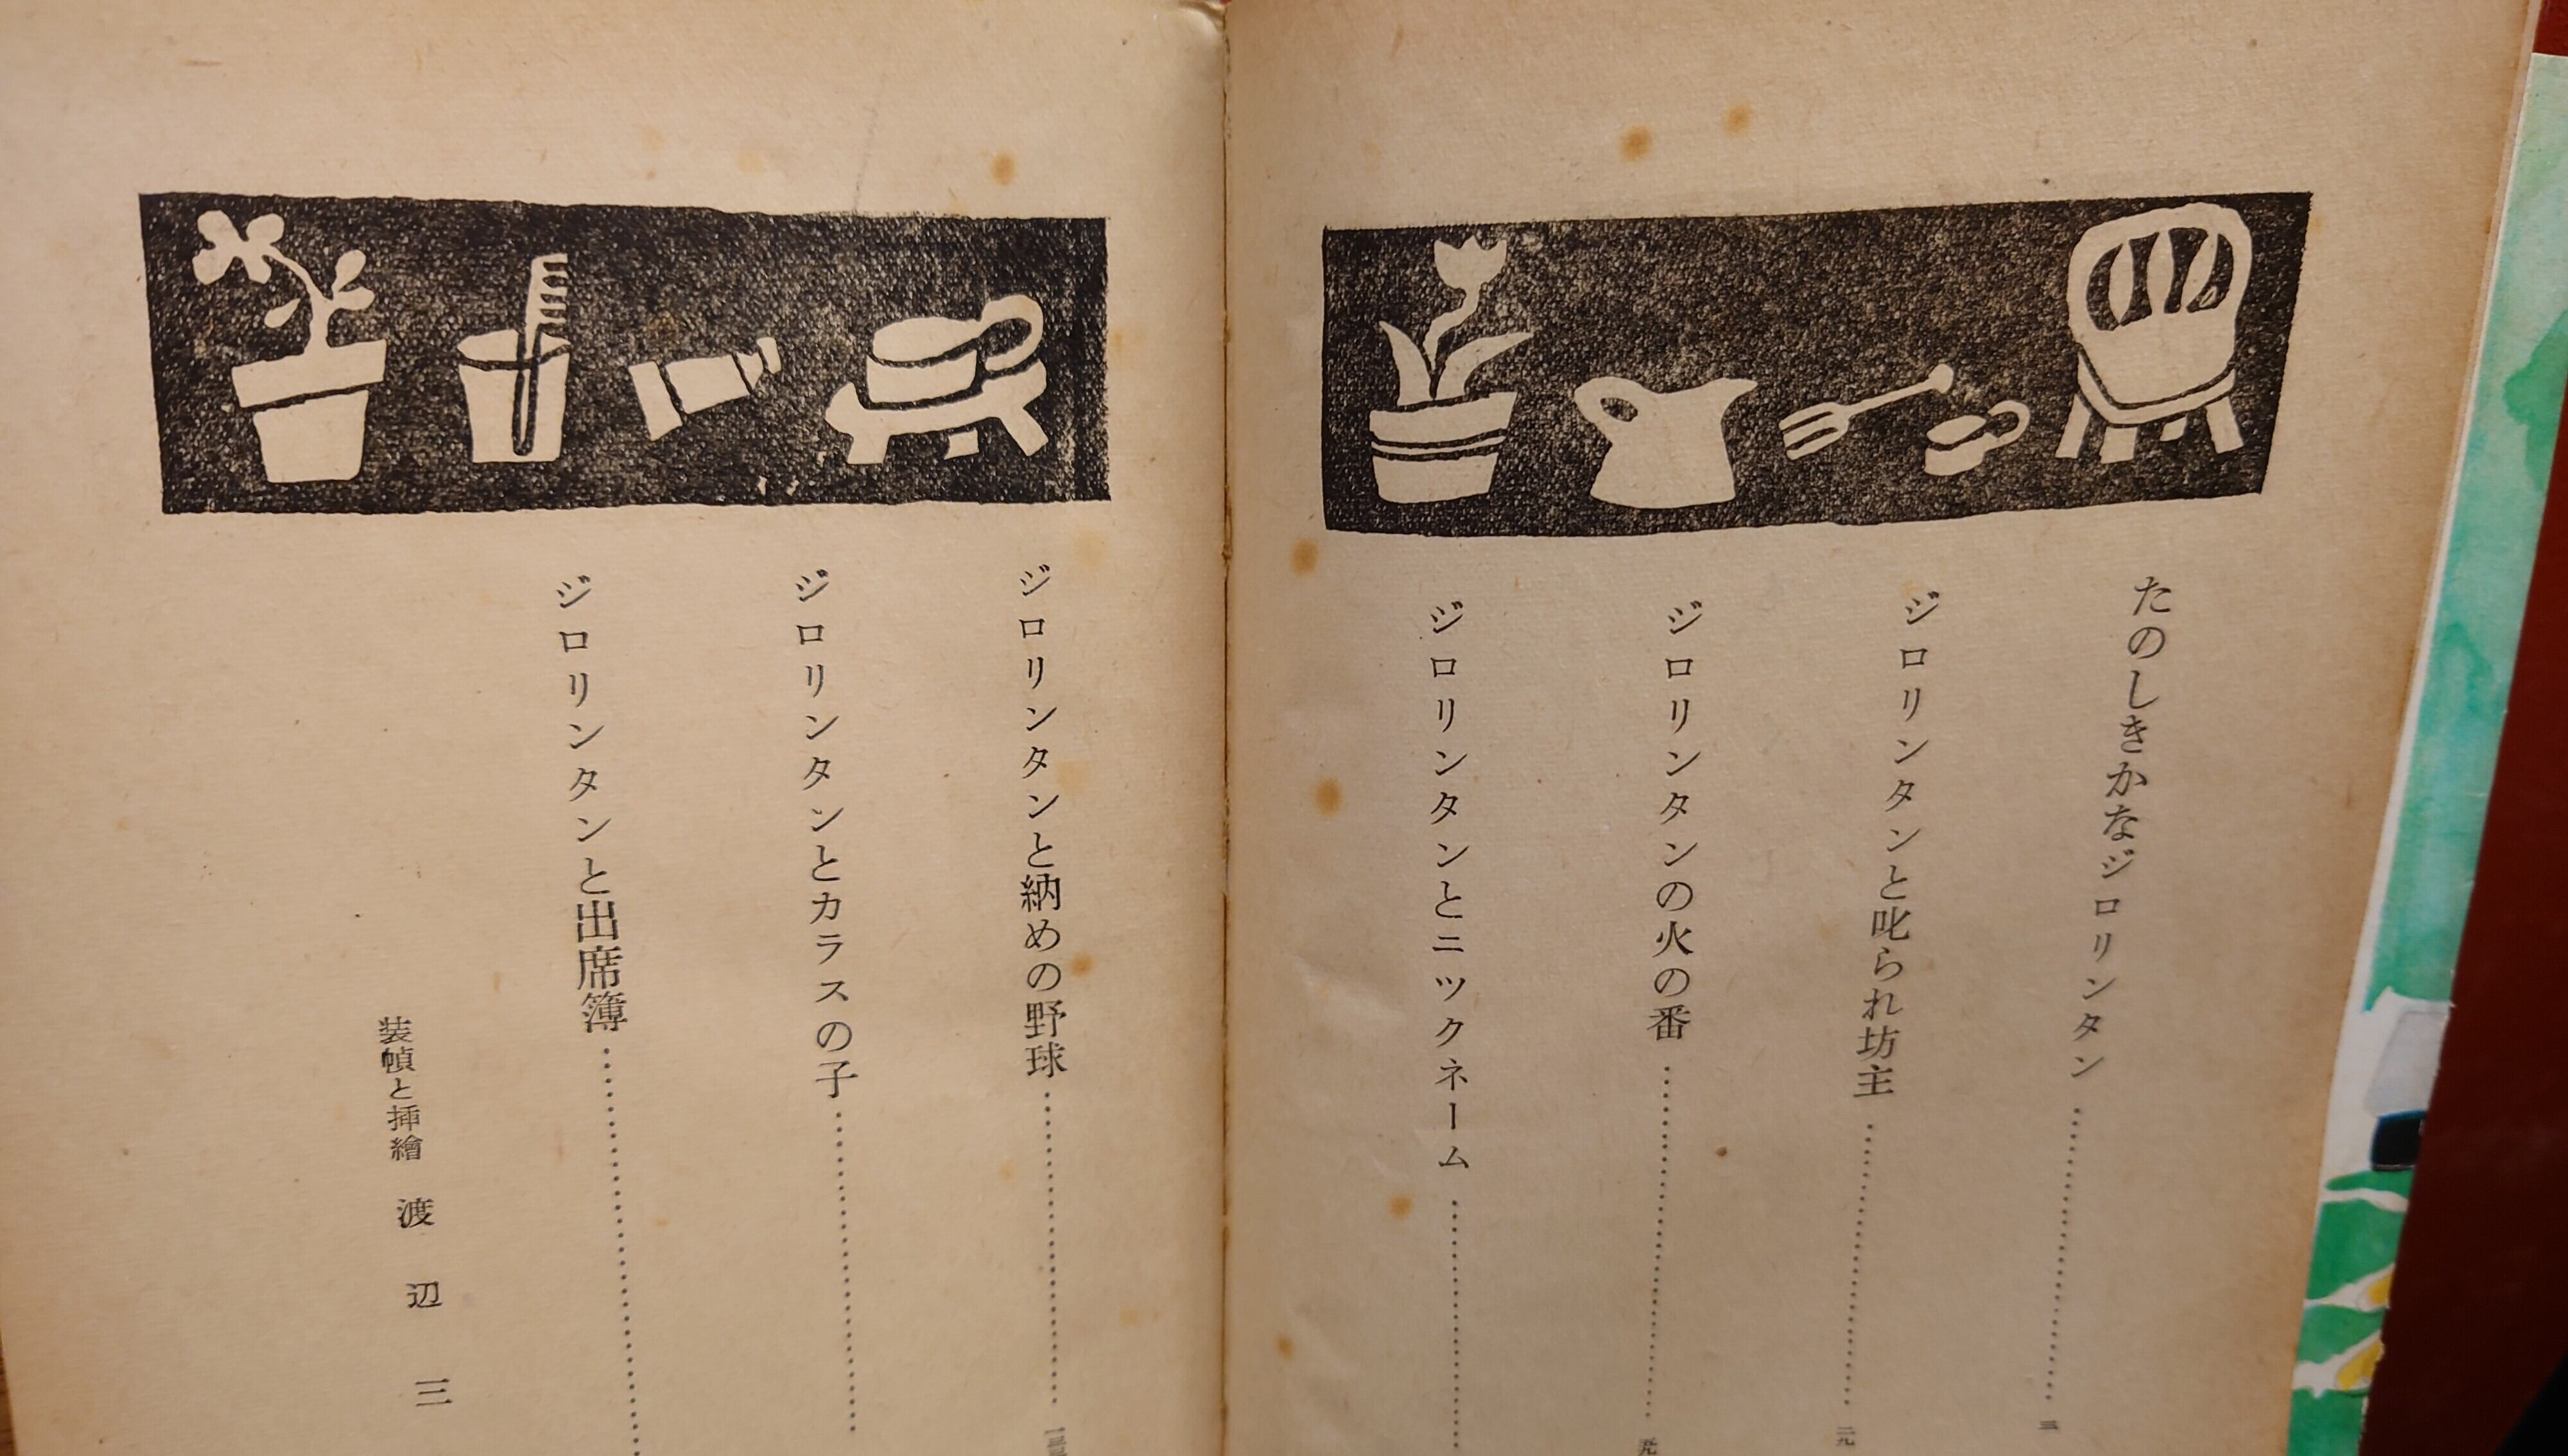 たのしきかなジロリンタン…………
ジロリンタンと叱られ坊主…………
ジロリンタンの火の番…………
ジロリンタンとニツクネーム…………
ジロリンタンと納めの野球…………
ジロリンタンとカラスの子…………
ジロリンタンと出席簿…………
装幀と挿繪 渡辺三